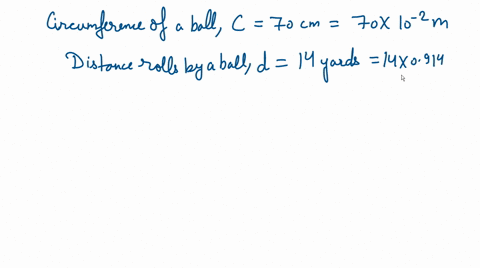 Circumference of a ball, C = 70 cm = 70 X 10⁻² m
Distance rolls by a ball, d = 14 yards = 14 X 0.914